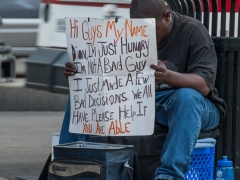 Hi Guys My Name
I'm Just Hungry
I'm Not A Bad Guy
I Just Made A Few
Bad Decisions We All
Have Please Help If
You Are Able